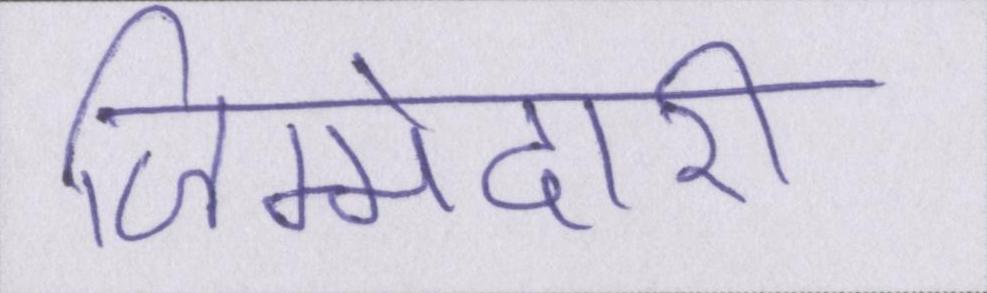 जिम्मेदारी